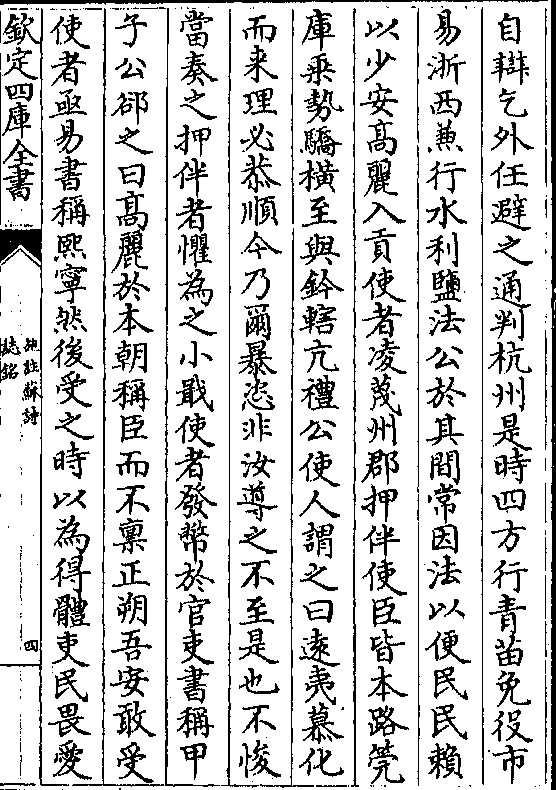 自辯乞外任避之通判杭州是時四方行青苗免役市
易浙西兼行水利鹽法公於其間常因法以便民民賴
以少安髙麗入貢使者凌蔑州郡押伴使臣皆本路筦
庫乘勢驕橫至與鈐轄亢禮公使人謂之曰逺夷慕化
而来理必恭順今乃爾暴恣非汝導之不至是也不悛
當奏之押伴者懼為之小戢使者發幣於官吏書稱甲
子公郤之曰髙麗於本朝稱臣而不禀正朔吾安敢受
使者亟易書稱熙寧然後受之時以為得體吏民畏愛
欽定四庫全書
施註蘇詩
誌銘
四